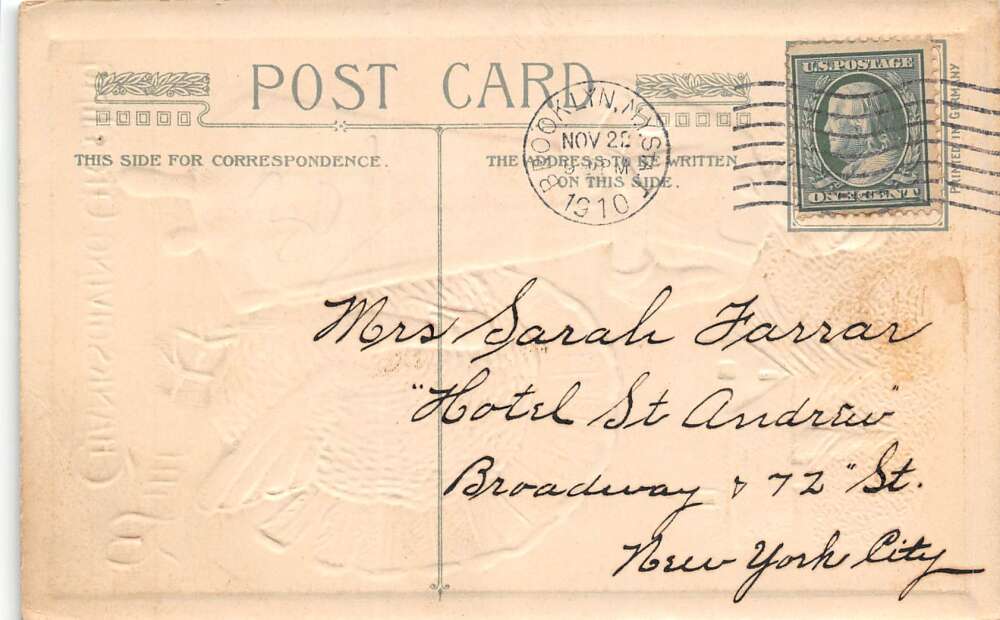 POST CARD
THIS SIDE FOR CORRESPONDENCE.
THE ADDRESS TO BE WRITTEN
ON THIS SIDE.
BROOKLYN, N.Y.
NOV 22
PM
1910
U.S. POSTAGE
ONE CENT
PRINTED IN GERMANY
Mrs Sarah Farrar
"Hotel St Andrew"
Broadway & 72" St.
New York City